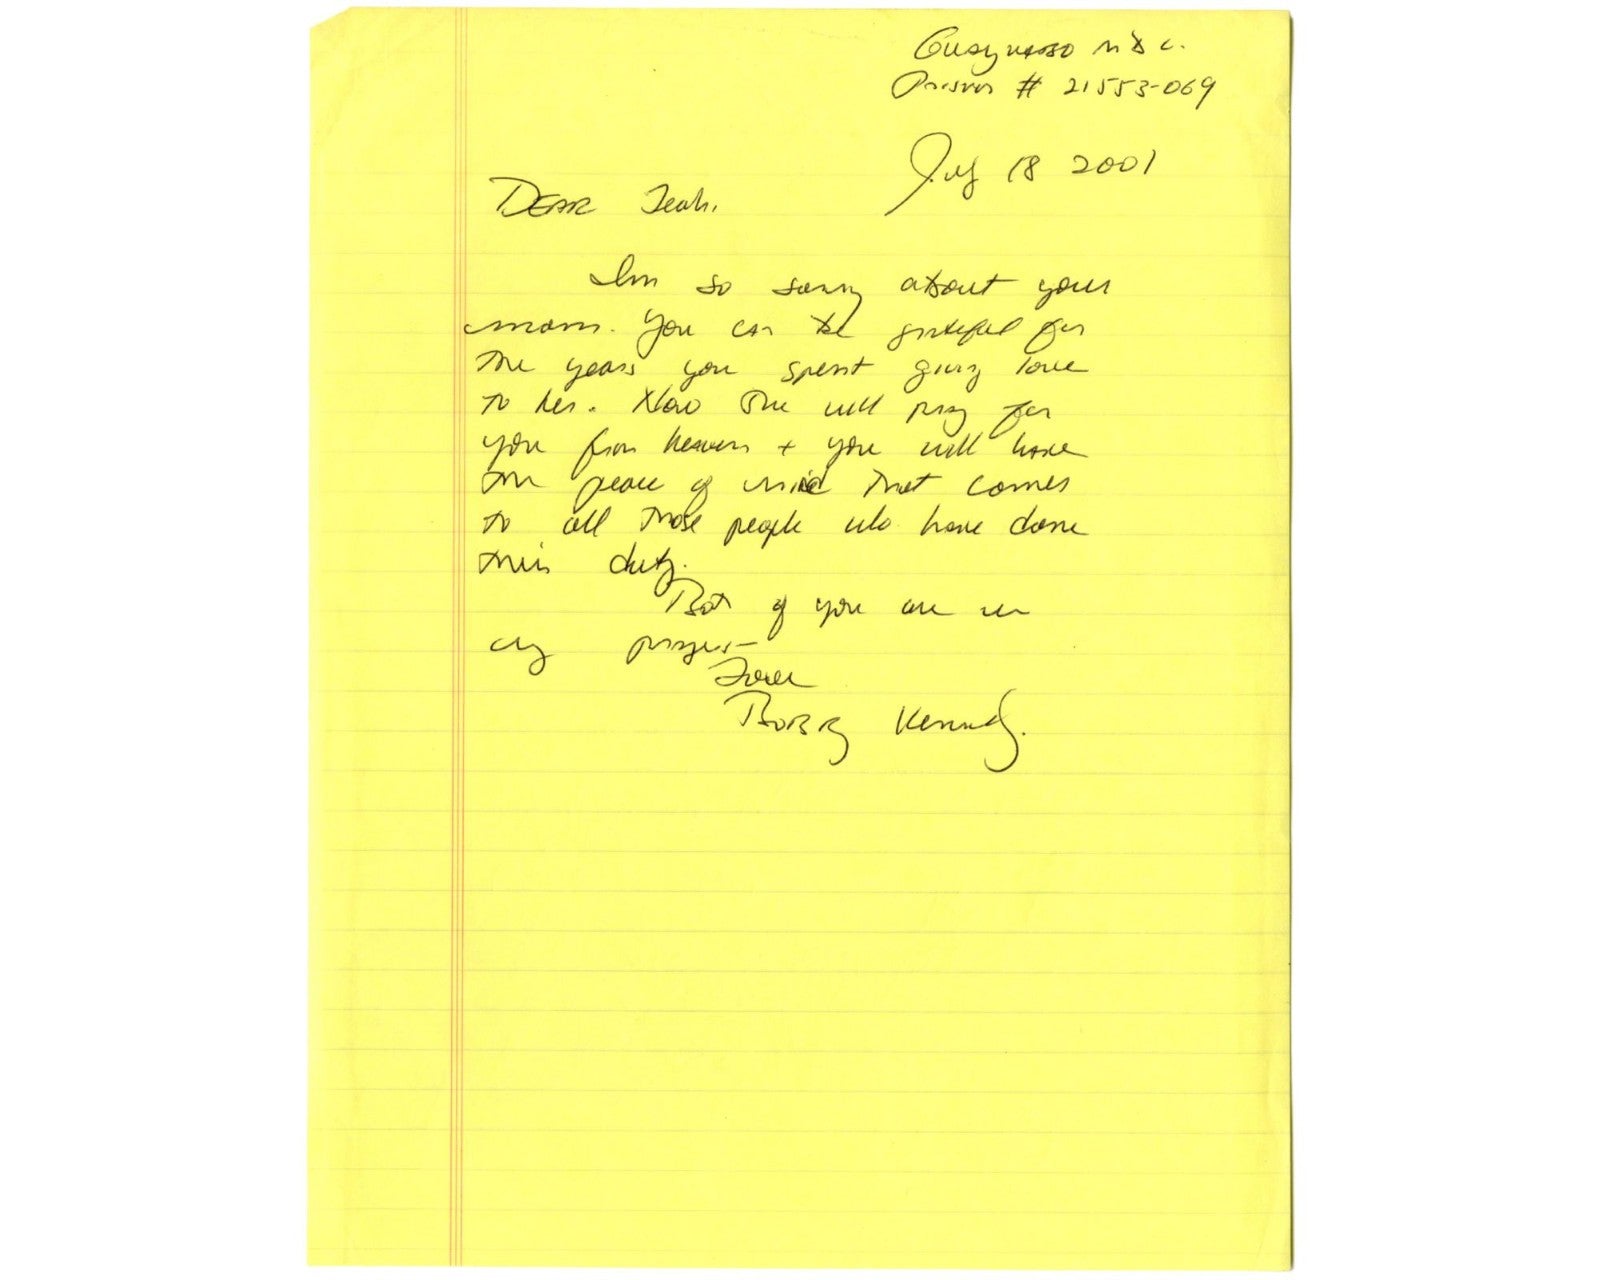 Guaynabo M D C.
Prison # 21553-069
July 18 2001
DEAR Leah,
Im so sorry about your
mom. You can be grateful for
the years you spent giving love
to her. Now she will pray for
you from heaven + you will have
the peace of mind that comes
to all those people who have done
their duty.
Both of you are in
my prayers -
Love
BOBBY Kennedy.